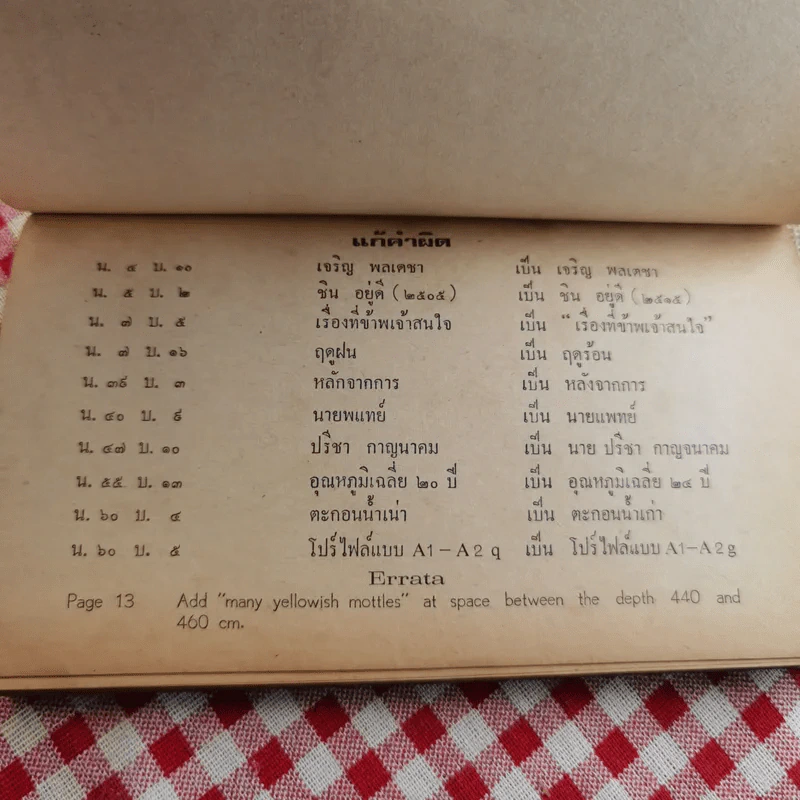 แก้คำผิด
น. ๔ บ. ๑๐ เจริญ พลเตชา เป็น เจริญ พลเดชา
น. ๕ บ. ๒ ชิน อยู่ดี (๒๕๐๕) เป็น ชิน อยู่ดี (๒๕๑๕)
น. ๗ บ. ๕ เรื่องที่ข้าพเจ้าสนใจ เป็น “เรื่องที่ข้าพเจ้าสนใจ”
น. ๗ บ. ๑๖ ฤดูฝน เป็น ฤดูร้อน
น. ๓๙ บ. ๓ หลักจากการ เป็น หลังจากการ
น. ๔๐ บ. ๙ นายพแทย์ เป็น นายแพทย์
น. ๔๗ บ. ๑๐ ปรีชา กาญนาคม เป็น นาย ปรีชา กาญจนาคม
น. ๕๕ บ. ๑๓ อุณหภูมิเฉลี่ย ๒๐ ปี เป็น อุณหภูมิเฉลี่ย ๒๔ ปี
น. ๖๐ บ. ๔ ตะกอนน้ำเน่า เป็น ตะกอนน้ำเก่า
น. ๖๐ บ. ๕ โปร์ไฟล์แบบ A1–A2 q เป็น โปร์ไฟล์แบบ A1–A2 g
Errata
Page 13 Add "many yellowish mottles" at space between the depth 440 and
460 cm.